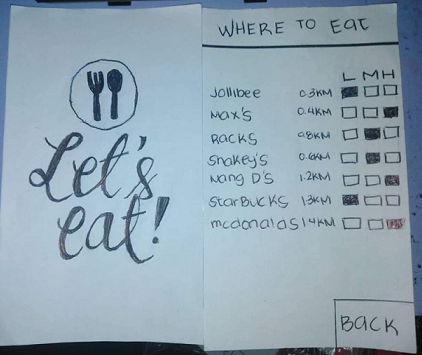 Let's
eat!
WHERE TO EAT
L M H
Jollibee 0.3KM
Max's 0.4KM
Racks 0.8KM
Shakey's 0.6KM
Mang D's 1.2KM
StarBucks 1.3KM
mcdonalds 1.4KM
Back